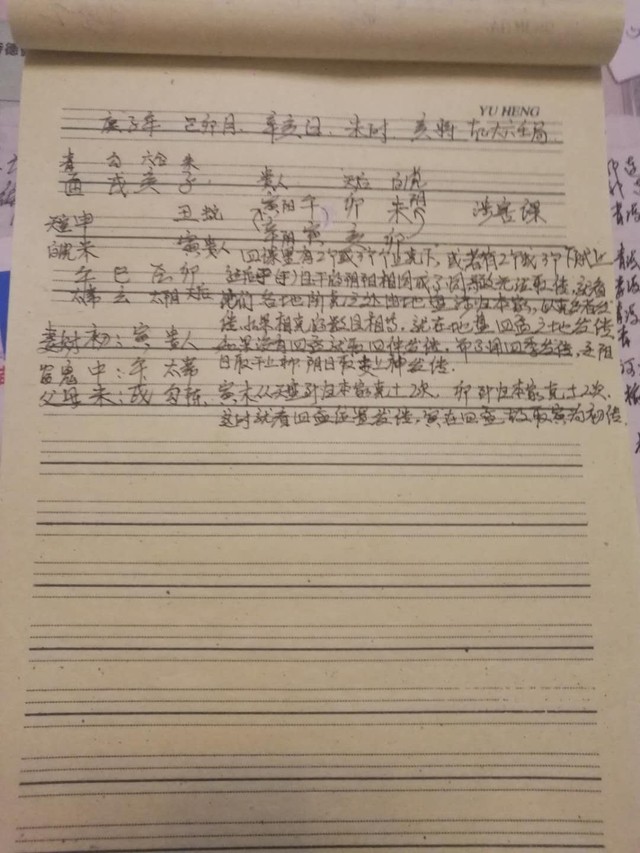 YU HENG
庚子年 己卯月. 辛亥日. 未时. 亥将 大六壬局
青 勾 六合 朱
酉 戌 亥 子 贵人 天后 白虎
申 丑蛇 寅 午 卯 未 涉害课
辛 寅 亥 卯
白虎 未 寅贵人 四课里有2个或3个上克下, 或者有2个或3个下贼上
午 巳 辰 卯
太常 玄 太阴 天后 他们各地所克之处由地盘涉归本家, 以克多者发
传, 如果相克的数目相等, 就在地盘四孟之地发传
妻财 初: 寅 贵人 如果没有四孟就取四仲发传, 除了用四季发传, 是阳
官鬼 中: 午 太常 日取干上神 阴日取支上神发传.
父母 末: 戌 勾陈. 寅木从天盘到归本家克土2次, 卯到归本家克土2次.
这时就看四孟位置发传, 寅在四孟, 故取寅为初传.